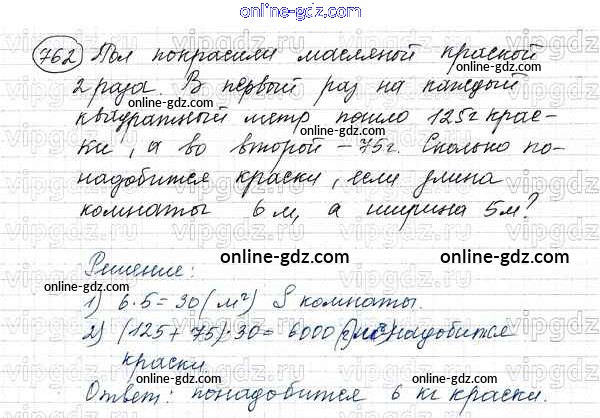 online-gdz.com
762 Пол покрасили масляной краской
2 раза. В первый раз на каждый
online-gdz.com online-gdz.com
квадратный метр пошло 125 г крас-
ки, а во второй – 75 г. Сколько по-
надобится краски, если длина
комнаты 6 м, а ширина 5 м?
online-gdz.com online-gdz.com
Решение:
online-gdz.com
1) 6·5=30 (м²) S комнаты.
2) (125+75)·30=6000 понадобится
краски.
online-gdz.com
Ответ: понадобится 6 кг краски.
online-gdz.com
vipgdz